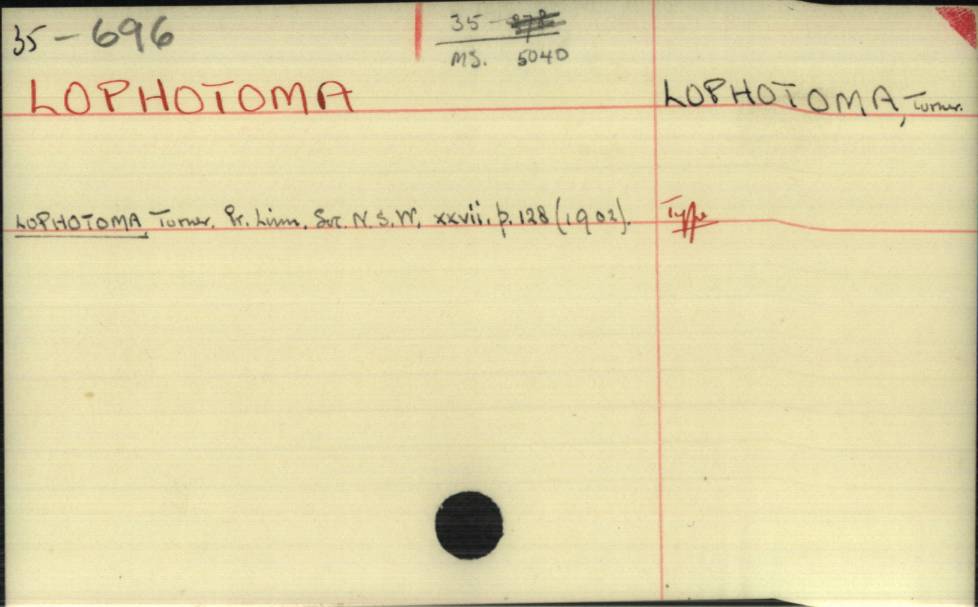 35-696
35-
MS. 5040
LOPHOTOMA
LOPHOTOMA, Turner.
LOPHOTOMA Turner, Pr. Linn. Soc. N.S.W, xxvii. p. 128 (1902).
Type